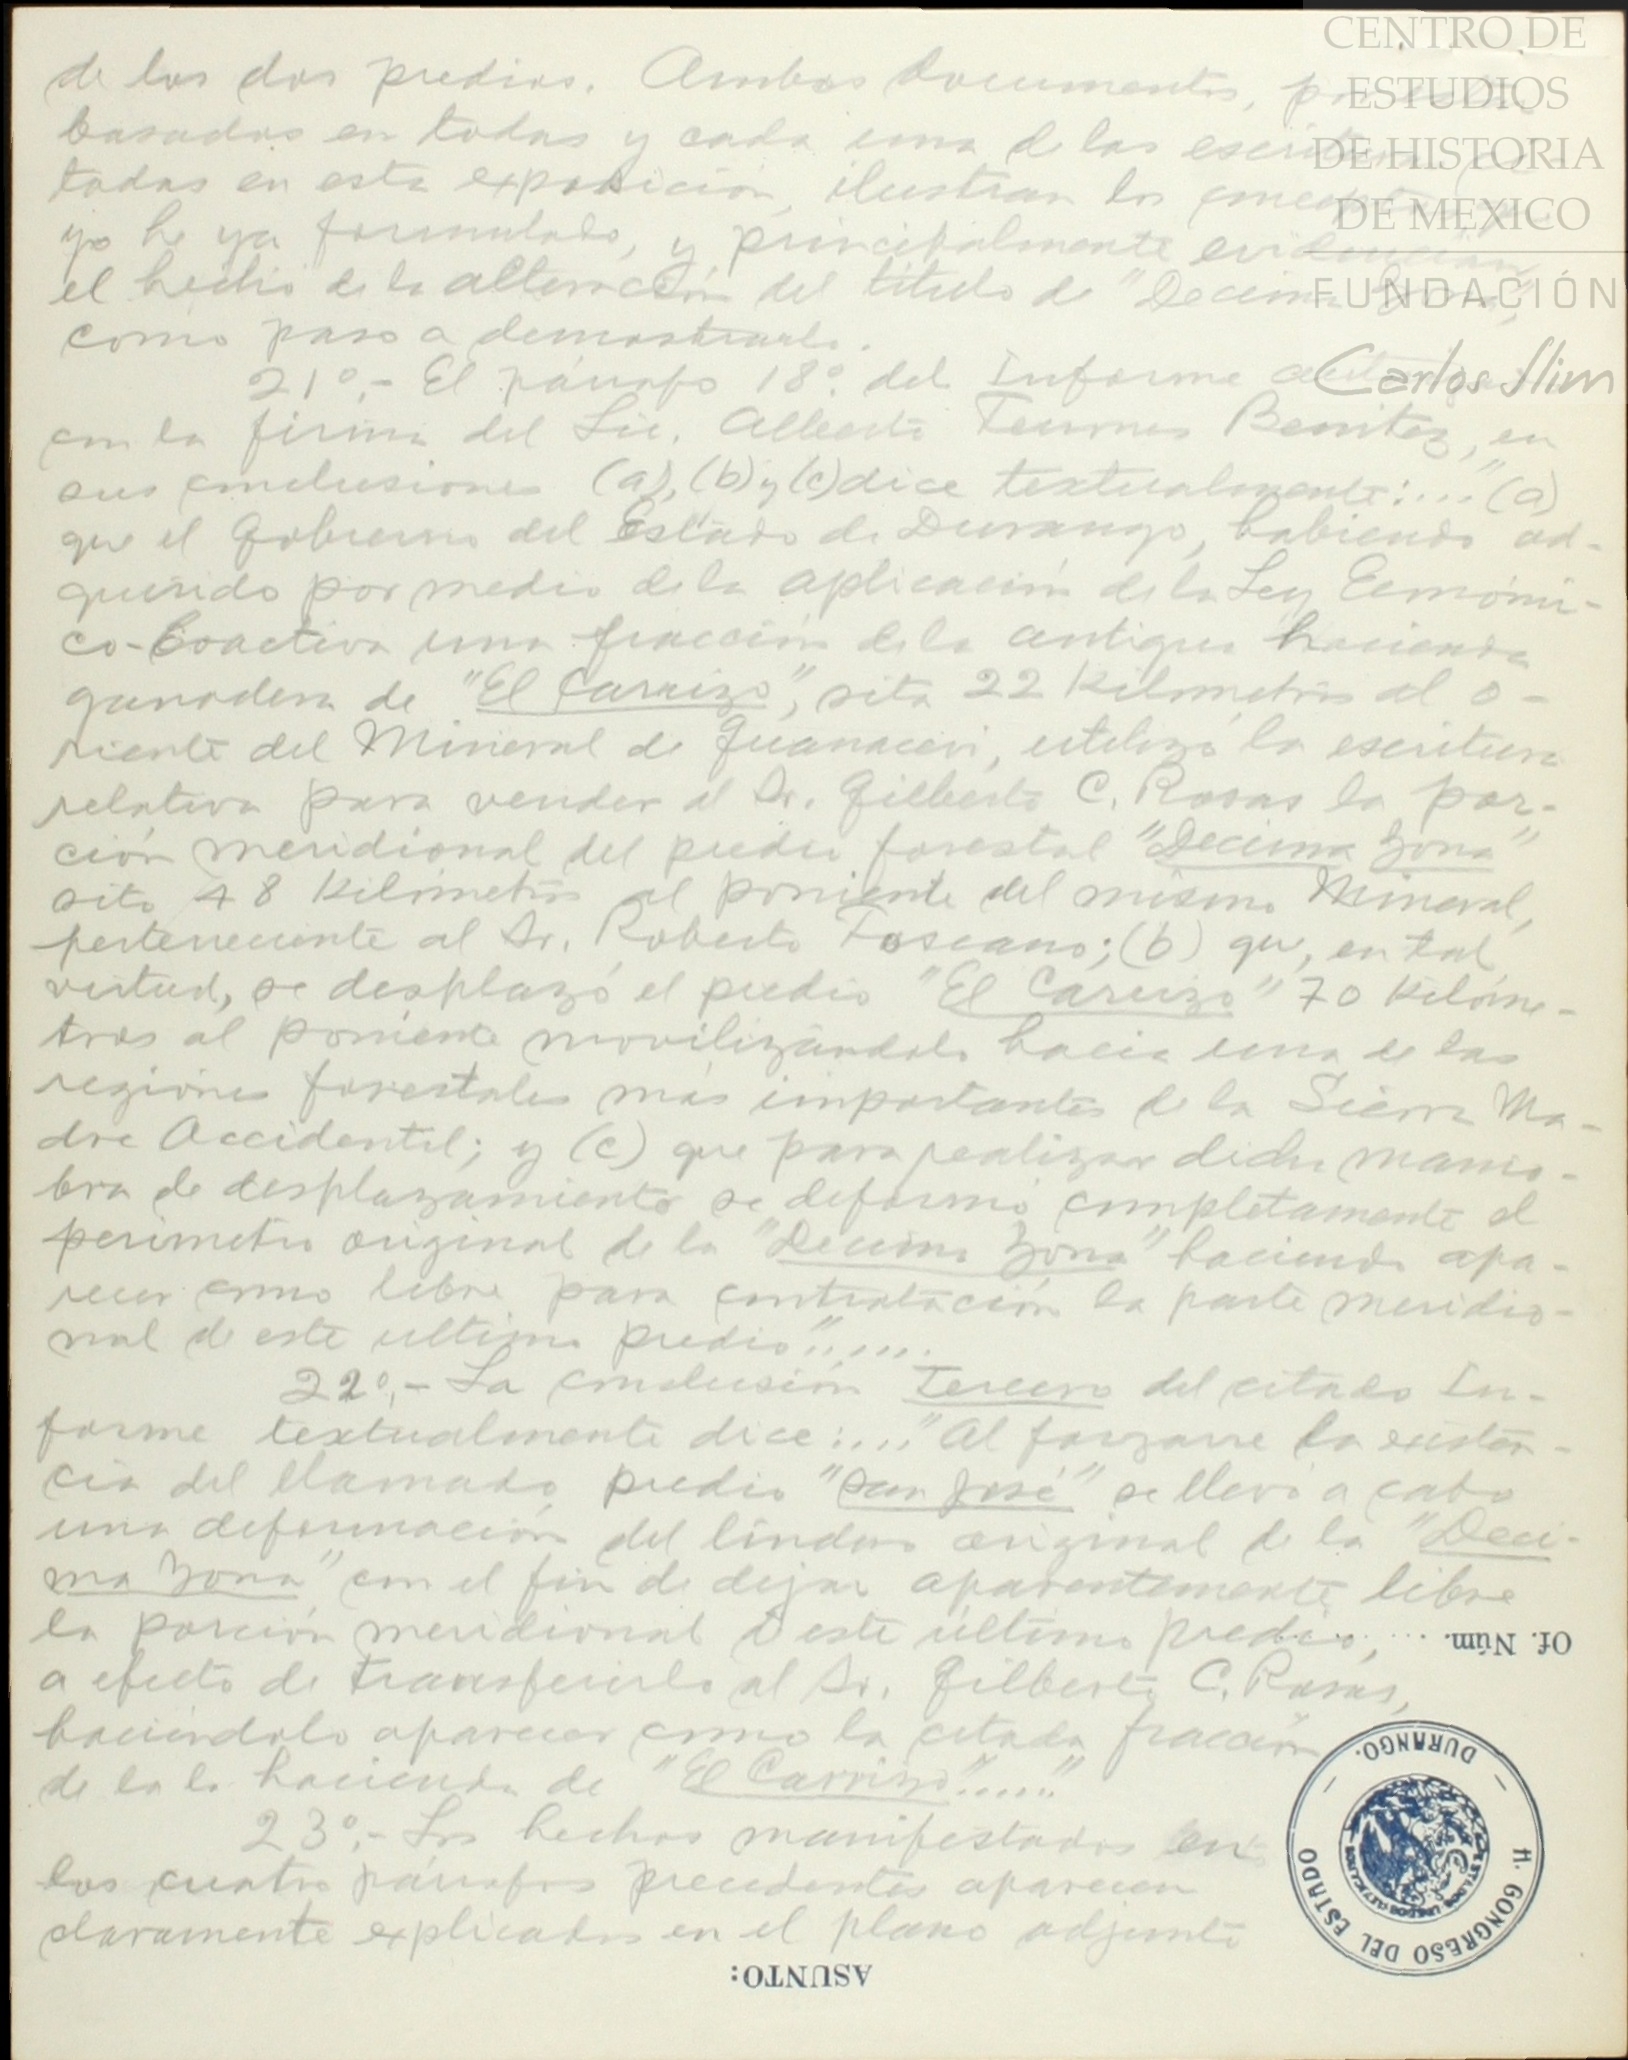 CENTRO DE
ESTUDIOS
DE HISTORIA
DE MEXICO
FUNDACIÓN
Carlos Slim
de los dos predios. Ambos documentos,
basados en todas y cada una de las
tadas en esta exposición, ilustran los
yo he ya formulado, y principalmente evidencian
el hecho de la alteración del título de "Decima Zona",
como paso a demostrarlo.
21º.- El párrafo 18º. del Informe
con la firma del Lic. Alberto Terrones Benitez, en
sus conclusiones (a), (b) y (c) dice textualmente:..." (a)
que el Gobierno del Estado de Durango, habiendo ad-
quirido por medio de la aplicación de la Ley Económi-
co-Coactiva una fracción de la antigua hacienda
ganadera de "El Carrizo", sita 22 Kilometros al o-
riente del Mineral de Guanacevi, utilizó la escritura
relativa para vender al Sr. Gilberto C. Rosas la por-
ción meridional del predio forestal "Decima Zona"
sito 48 Kilómetros al poniente del mismo Mineral,
perteneciente al Sr. Roberto Toscano; (b) que, en tal
virtud, se desplazó el predio "El Carrizo" 70 Kilóme-
tros al poniente movilizándolo hacia una de las
regiones forestales más importantes de la Sierra Ma-
dre Occidental; y (c) que para realizar dicha manio-
bra de desplazamiento se deformó completamente el
perimetro original de la "Decima Zona" haciendo apa-
recer como libre para contratación la parte meridio-
nal de este ultimo predio".....
22º.- La conclusión Tercera del citado In-
forme textualmente dice:..."Al forzarse la existen-
cia del llamado predio "San José" se llevó a cabo
una deformación del lindero original de la "Deci-
ma Zona" con el fin de dejar aparentemente libre
la porción meridional d este último predio,
a efecto de transferirlo al Sr. Gilberto C. Rosas,
haciéndolo aparecer como la citada fracción
de la la hacienda de "El Carrizo"....."
23º.- Los hechos manifestados en
los cuatro párrafos precedentes aparecen
claramente explicados en el plano adjunto
Of. Núm. . . . . . . .
H. CONGRESO DEL ESTADO
DURANGO.
ESTADOS UNIDOS MEXICANOS
ASUNTO: